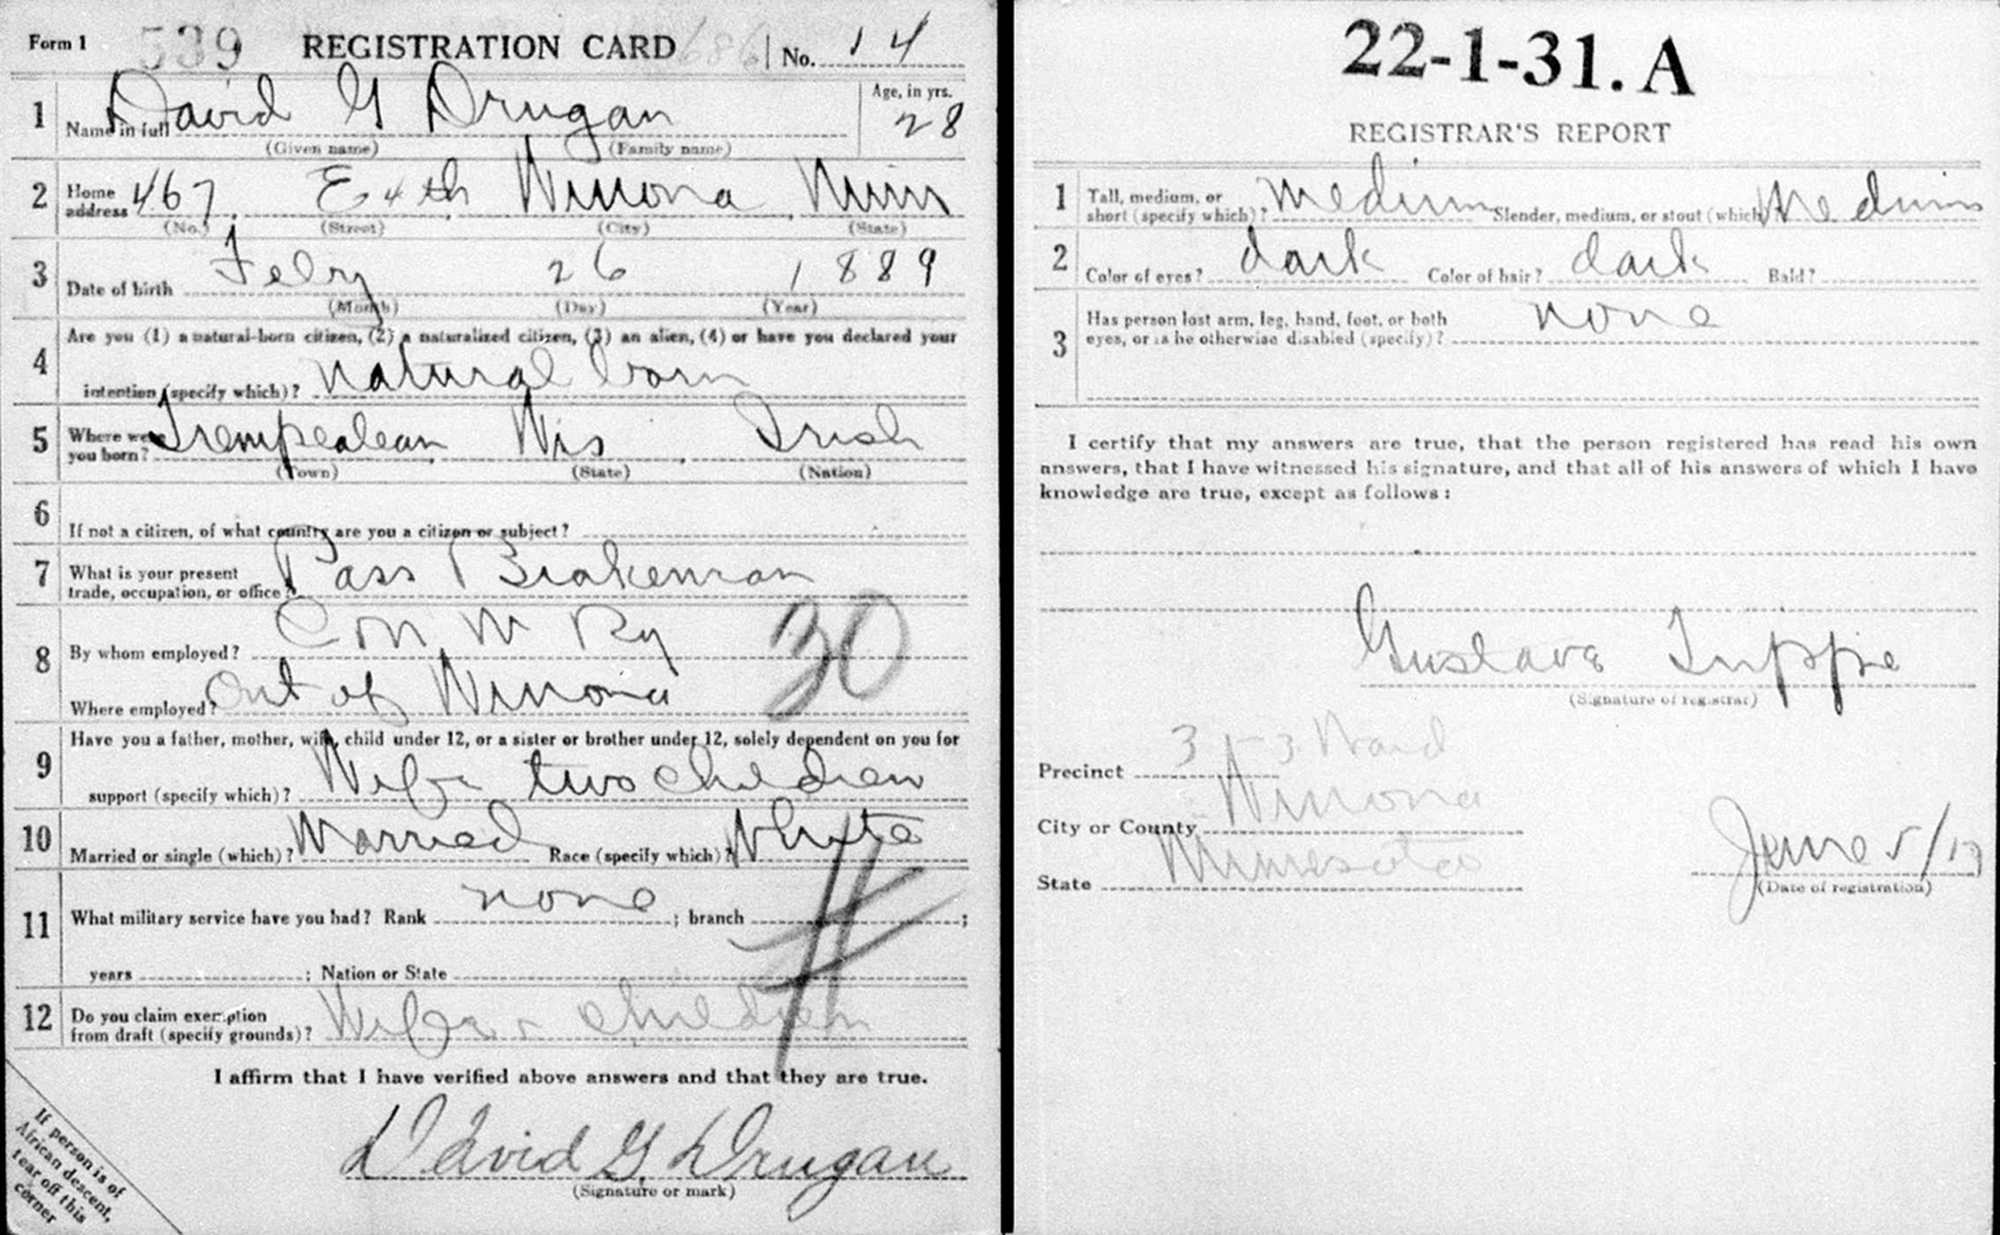 Form 1 539 REGISTRATION CARD 686 No. 14
1 Name in full David G Drugan Age, in yrs. 28
(Given name) (Family name)
2 Home address 467 E 4th Winona Minn
(No.) (Street) (City) (State)
3 Date of birth Feby 26 1889
(Month) (Day) (Year)
4 Are you (1) a natural-born citizen, (2) a naturalized citizen, (3) an alien, (4) or have you declared your
intention (specify which)? natural born
5 Where were you born? Trempealeau Wis Irish
(Town) (State) (Nation)
6 If not a citizen, of what country are you a citizen or subject?
7 What is your present trade, occupation, or office? Pass Brakeman
8 By whom employed? C N W Ry
Where employed? Out of Winona
30
9 Have you a father, mother, wife, child under 12, or a sister or brother under 12, solely dependent on you for
support (specify which)? Wife two children
10 Married or single (which)? Married Race (specify which)? White
11 What military service have you had? Rank none ; branch ;
years ; Nation or State
12 Do you claim exemption from draft (specify grounds)? Wife + children
I affirm that I have verified above answers and that they are true.
David G. Drugan
(Signature or mark)
If person is of
African descent,
tear off this
corner
22-1-31. A
REGISTRAR'S REPORT
1 Tall, medium, or short (specify which)? Medium Slender, medium, or stout (which)? Medium
2 Color of eyes? dark Color of hair? dark Bald?
3 Has person lost arm, leg, hand, foot, or both
eyes, or is he otherwise disabled (specify)? none
I certify that my answers are true, that the person registered has read his own
answers, that I have witnessed his signature, and that all of his answers of which I have
knowledge are true, except as follows:
Gustave
(Signature of registrar)
Precinct 3 - 3 Ward
City or County Winona
State Minnesota
June 5/17
(Date of registration)